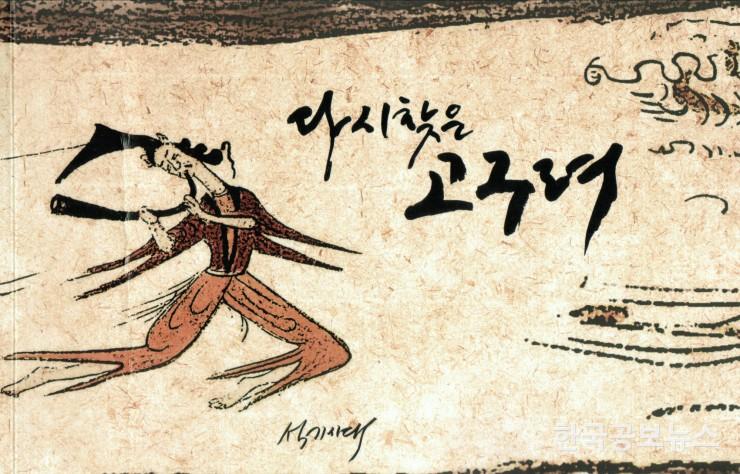 다시찾은
고구려
석기시대
한국공보뉴스